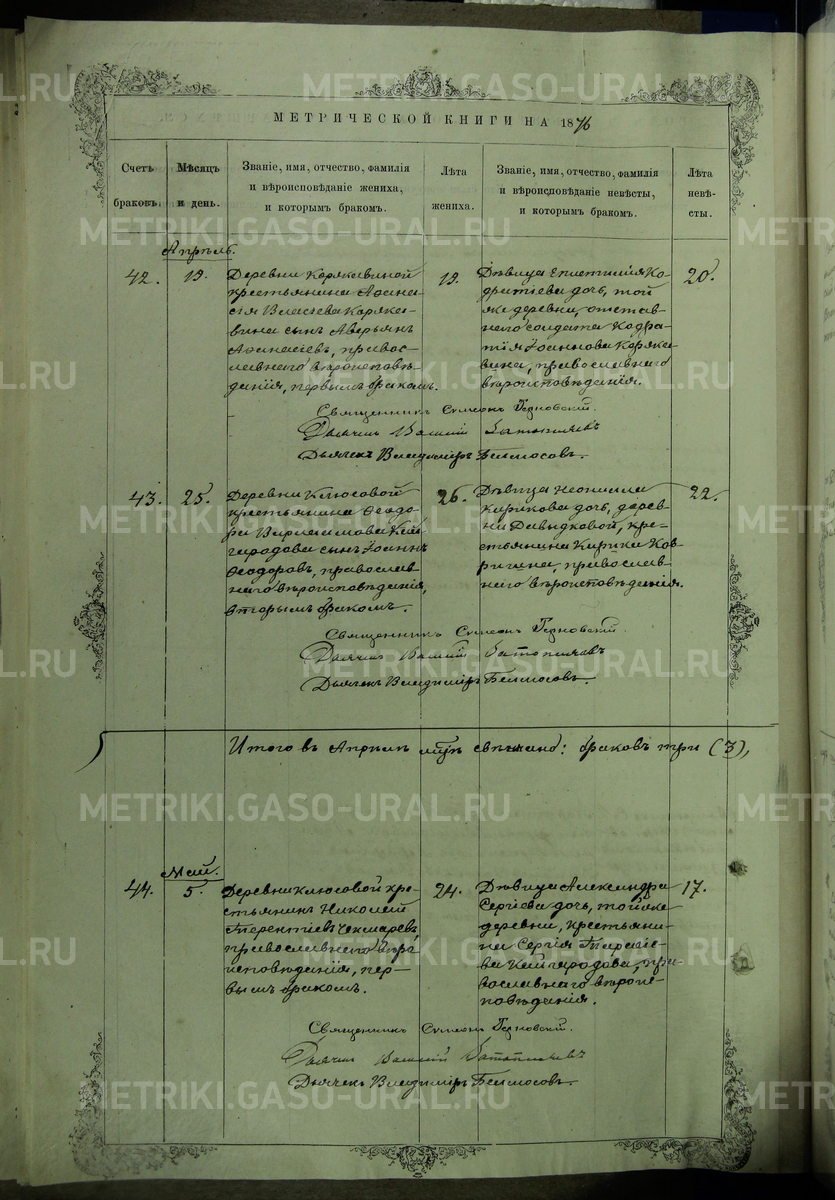 МЕТРИЧЕСКОЙ КНИГИ НА 1876
Счетъ браковъ.
Мѣсяцъ и день.
Званіе, имя, отчество, фамилія
и вѣроисповѣданіе жениха,
и которымъ бракомъ.
Лѣта жениха.
Званіе, имя, отчество, фамилія
и вѣроисповѣданіе невѣсты,
и которымъ бракомъ.
Лѣта невѣ-
сты.
Апрѣль.
42.
19.
Деревни Корякиной
крестьянина Афана-
сія Власіева Коряки-
вина сынъ Аверьянъ
Афанасіевъ, правос-
лавнаго вѣроисповѣ-
данія, первымъ бракомъ.
19.
Дѣвица Епистимія Ко-
дратіева дочь, той
же деревни, отстав-
наго солдата Кодра-
тія Іоаннова Коряки-
вина, православнаго
вѣроисповѣданія.
20.
Священникъ Симеонъ
Дьячекъ Владиміръ Бѣлносовъ.
43.
25.
Деревни Клюсовой
крестьянина Ѳеодо-
ра Варлаамова Кай-
городова сынъ Іоаннъ
Ѳеодоровъ, православ-
наго вѣроисповѣданія,
вторымъ бракомъ.
26.
Дѣвица Неонилла
Кирикова дочь, дерев-
ни Давыдковой, кре-
стьянина Кирика Ков-
ригина, православ-
наго вѣроисповѣданія.
22.
Священникъ Симеонъ
Дьячекъ Владиміръ Бѣлносовъ.
Итого въ Апрѣлѣ мцѣ свѣнчано: браковъ три (3),
Май.
44.
5.
Деревни Клюсовой кре-
стьянинъ Николай
Терентіевъ Чекмаревъ,
православнаго вѣро-
исповѣданія, пер-
вымъ бракомъ.
24.
Дѣвица Александра
Сергіева дочь, той же
деревни, крестьяни-
на Сергія Тарасіе-
ва Кайгородова, пра-
вославнаго вѣроис-
повѣданія.
17.
Священникъ Симеонъ
Дьячекъ Владиміръ Бѣлносовъ.
METRIKI.GASO-URAL.RU